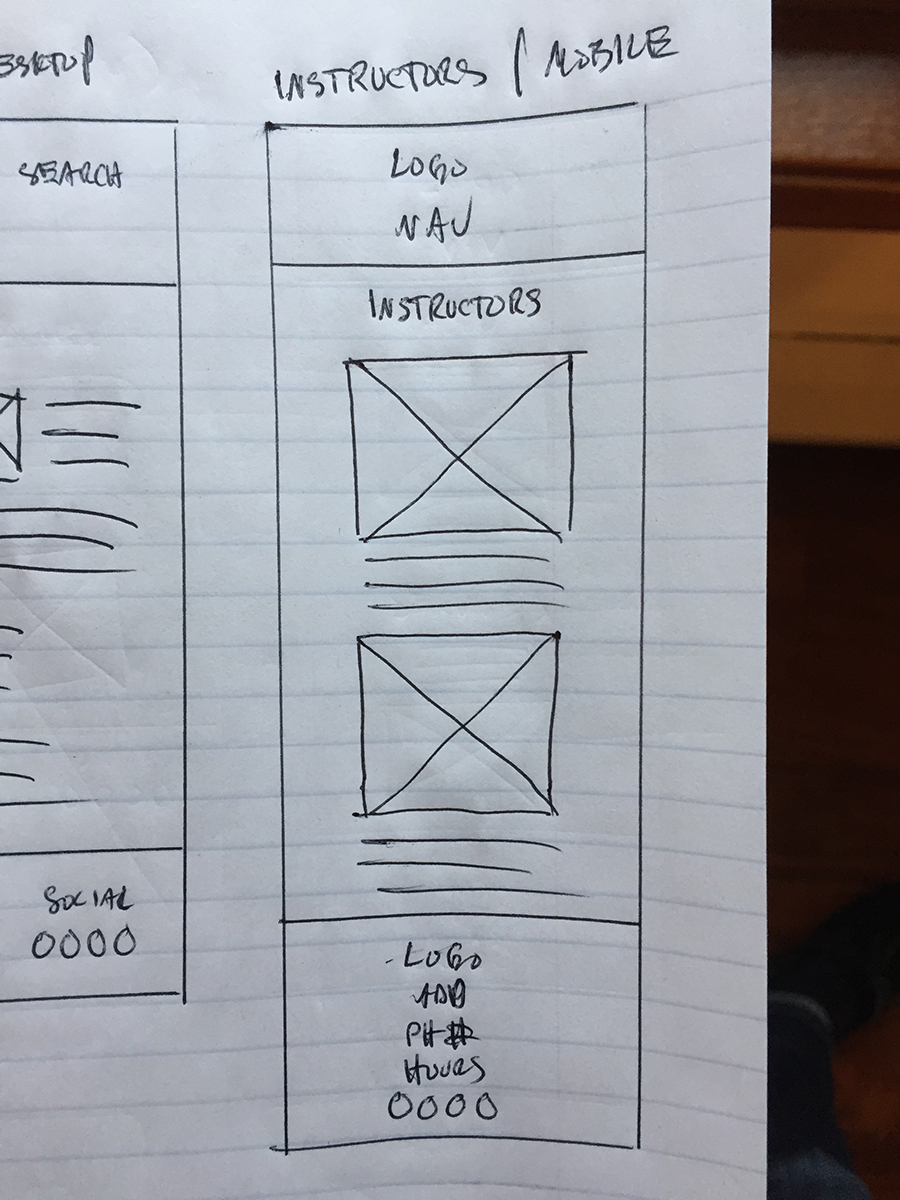 ESKTOP
SEARCH
SOCIAL
INSTRUCTORS / MOBILE
LOGO
NAV
INSTRUCTORS
LOGO
ADD
PH#
HOURS